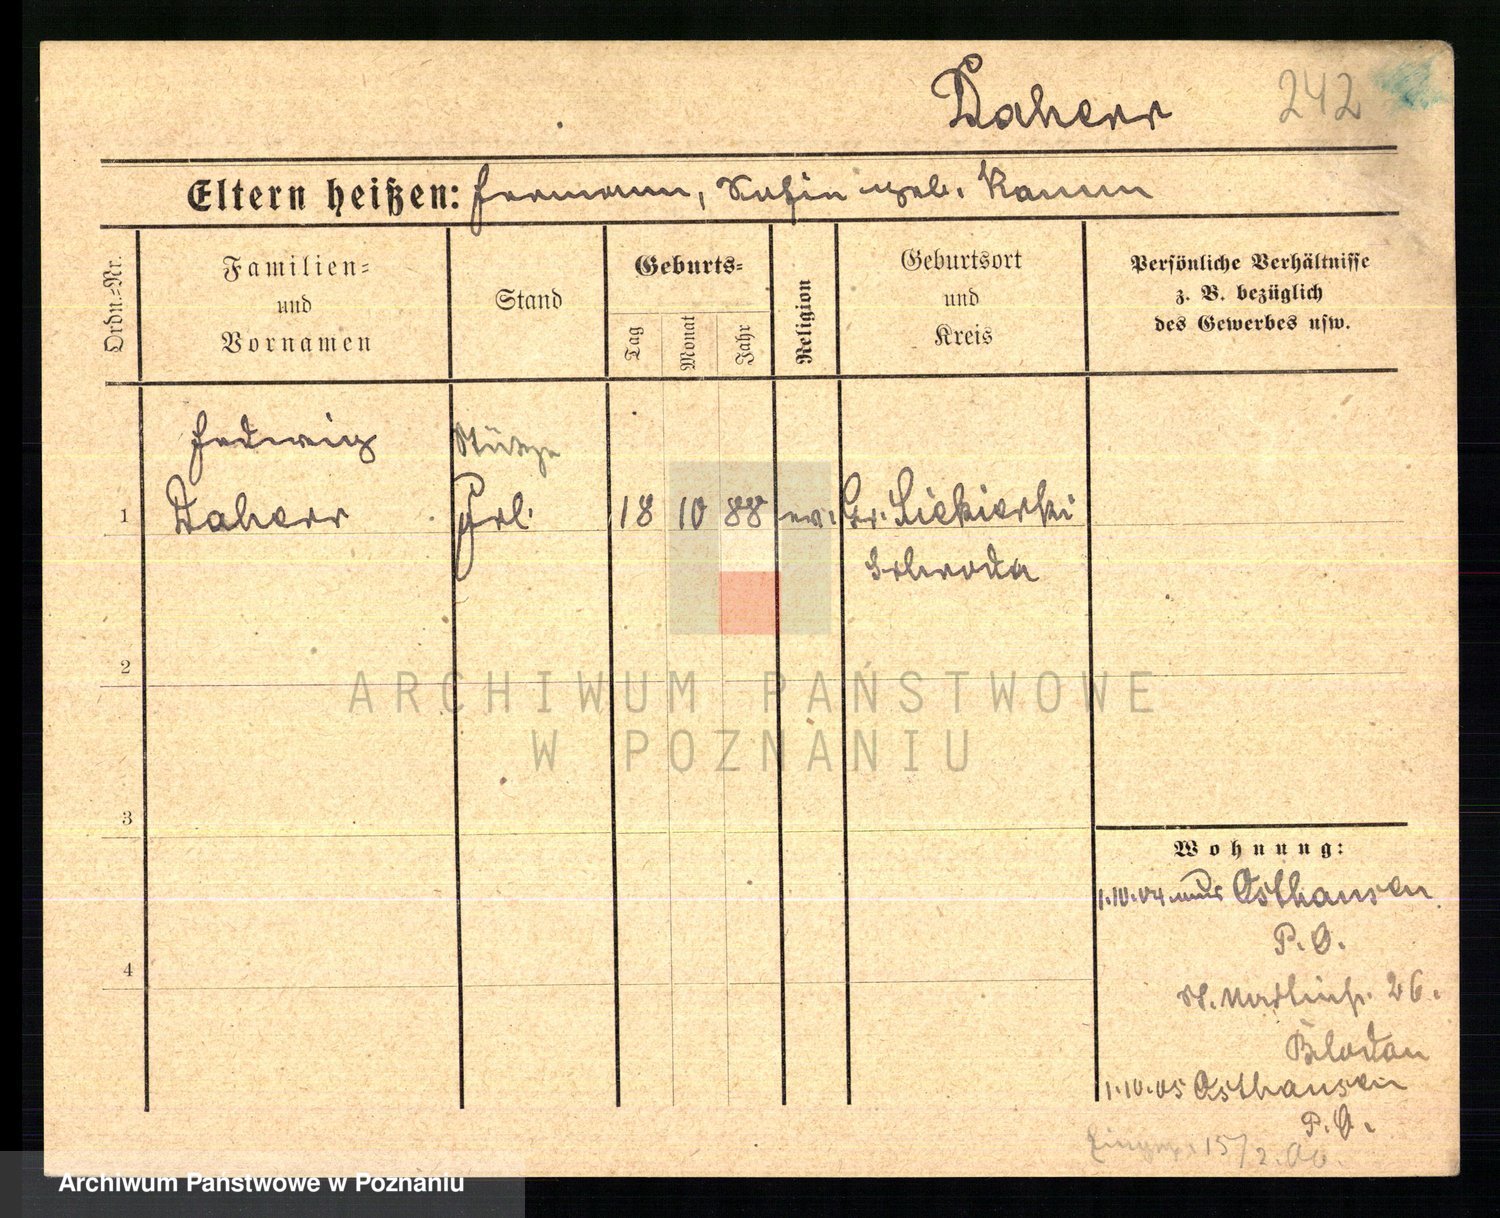 Daherr 242
Eltern heißen: Hermann, Sofie geb. Kamm
Ordn.=Nr.
Familien=
und
Vornamen
Stand
Geburts=
Tag
Monat
Jahr
Religion
Geburtsort
und
Kreis
Persönliche Verhältnisse
z. B. bezüglich
des Gewerbes usw.
Hedwig Stütze
1 Daherr Frl. 18 10 88 ev. Gr. Siekierki
Schroda
2
ARCHIWUM PAŃSTWOWE
W POZNANIU
3
Wohnung:
1.10.04 Osthausen
P. O.
26.
4
1.10.05 Osthausen
P. O.
15/2.
Archiwum Państwowe w Poznaniu